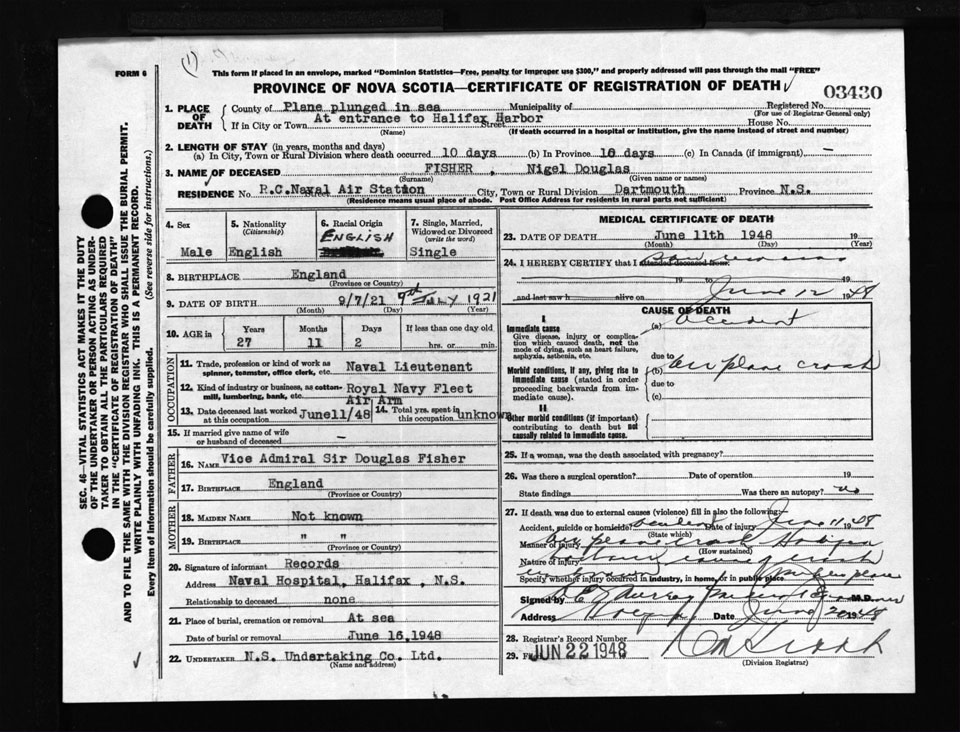 (1)
FORM 6
This form if placed in an envelope, marked "Dominion Statistics—Free, penalty for improper use $300," and properly addressed will pass through the mail "FREE"
PROVINCE OF NOVA SCOTIA—CERTIFICATE OF REGISTRATION OF DEATH
03430
SEC. 46—VITAL STATISTICS ACT MAKES IT THE DUTY
OF THE UNDERTAKER OR PERSON ACTING AS UNDER-
TAKER TO OBTAIN ALL THE PARTICULARS REQUIRED
IN THE "CERTIFICATE OF REGISTRATION OF DEATH"
AND TO FILE THE SAME WITH THE DIVISION REGISTRAR WHO SHALL ISSUE THE BURIAL PERMIT.
WRITE PLAINLY WITH UNFADING INK. THIS IS A PERMANENT RECORD.
Every item of information should be carefully supplied. (See reverse side for instructions.)
1. PLACE OF DEATH
County of Plane plunged in sea Municipality of Registered No.
(For use of Registrar General only)
If in City or Town At entrance to Halifax Harbor Street House No.
(Name) (If death occurred in a hospital or institution, give the name instead of street and number)
2. LENGTH OF STAY (in years, months and days)
(a) In City, Town or Rural Division where death occurred 10 days (b) In Province 10 days (c) In Canada (if immigrant) —
3. NAME OF DECEASED FISHER , Nigel Douglas
(Surname) (Given name or names)
RESIDENCE No. R.C.Naval Air Station City, Town or Rural Division Dartmouth Province N.S.
(Residence means usual place of abode. Post Office Address for residents in rural parts not sufficient)
4. Sex Male
5. Nationality (Citizenship) English
6. Racial Origin ENGLISH
7. Single, Married, Widowed or Divorced (write the word) Single
8. BIRTHPLACE England
(Province or Country)
9. DATE OF BIRTH 9/7/21 9th July 1921
(Month) (Day) (Year)
10. AGE in Years Months Days If less than one day old
27 11 2 hrs. or min.
OCCUPATION
11. Trade, profession or kind of work as spinner, teamster, office clerk, etc. Naval Lieutenant
12. Kind of industry or business, as cotton-mill, lumbering, bank, etc. Royal Navy Fleet Air Arm
13. Date deceased last worked at this occupation June11/48
14. Total yrs. spent in this occupation unknown
15. If married give name of wife or husband of deceased —
FATHER
16. NAME Vice Admiral Sir Douglas Fisher
17. BIRTHPLACE England
(Province or Country)
MOTHER
18. MAIDEN NAME Not known
19. BIRTHPLACE " "
(Province or Country)
20. Signature of informant Records
Address Naval Hospital, Halifax , N.S.
Relationship to deceased none
21. Place of burial, cremation or removal At sea
Date of burial or removal June 16,1948
22. UNDERTAKER N.S. Undertaking Co. Ltd.
(Name and address)
MEDICAL CERTIFICATE OF DEATH
23. DATE OF DEATH June 11th 1948 19
(Month) (Day) (Year)
24. I HEREBY CERTIFY that I attended deceased from:
19 to 19
and last saw h alive on June 12 1948
CAUSE OF DEATH
I
Immediate cause
Give disease, injury or complication which caused death, not the mode of dying, such as heart failure, asphyxia, asthenia, etc.
(a) Accident
due to
Morbid conditions, if any, giving rise to immediate cause (stated in order proceeding backwards from immediate cause).
(b) air plane crash
due to
(c)
II
Other morbid conditions (if important) contributing to death but not causally related to immediate cause.
25. If a woman, was the death associated with pregnancy?
26. Was there a surgical operation? Date of operation 19
State findings Was there an autopsy? no
27. If death was due to external causes (violence) fill in also the following:
Accident, suicide or homicide? accident Date of injury June 11 1948
(State which)
Manner of injury air plane crash Halifax
(How sustained)
Nature of injury
Specify whether injury occurred in industry, in home, or in public place
Signed by Murray M.D.
Address Date June 20 1948
28. Registrar's Record Number
29. JUN 22 1948
(Division Registrar)